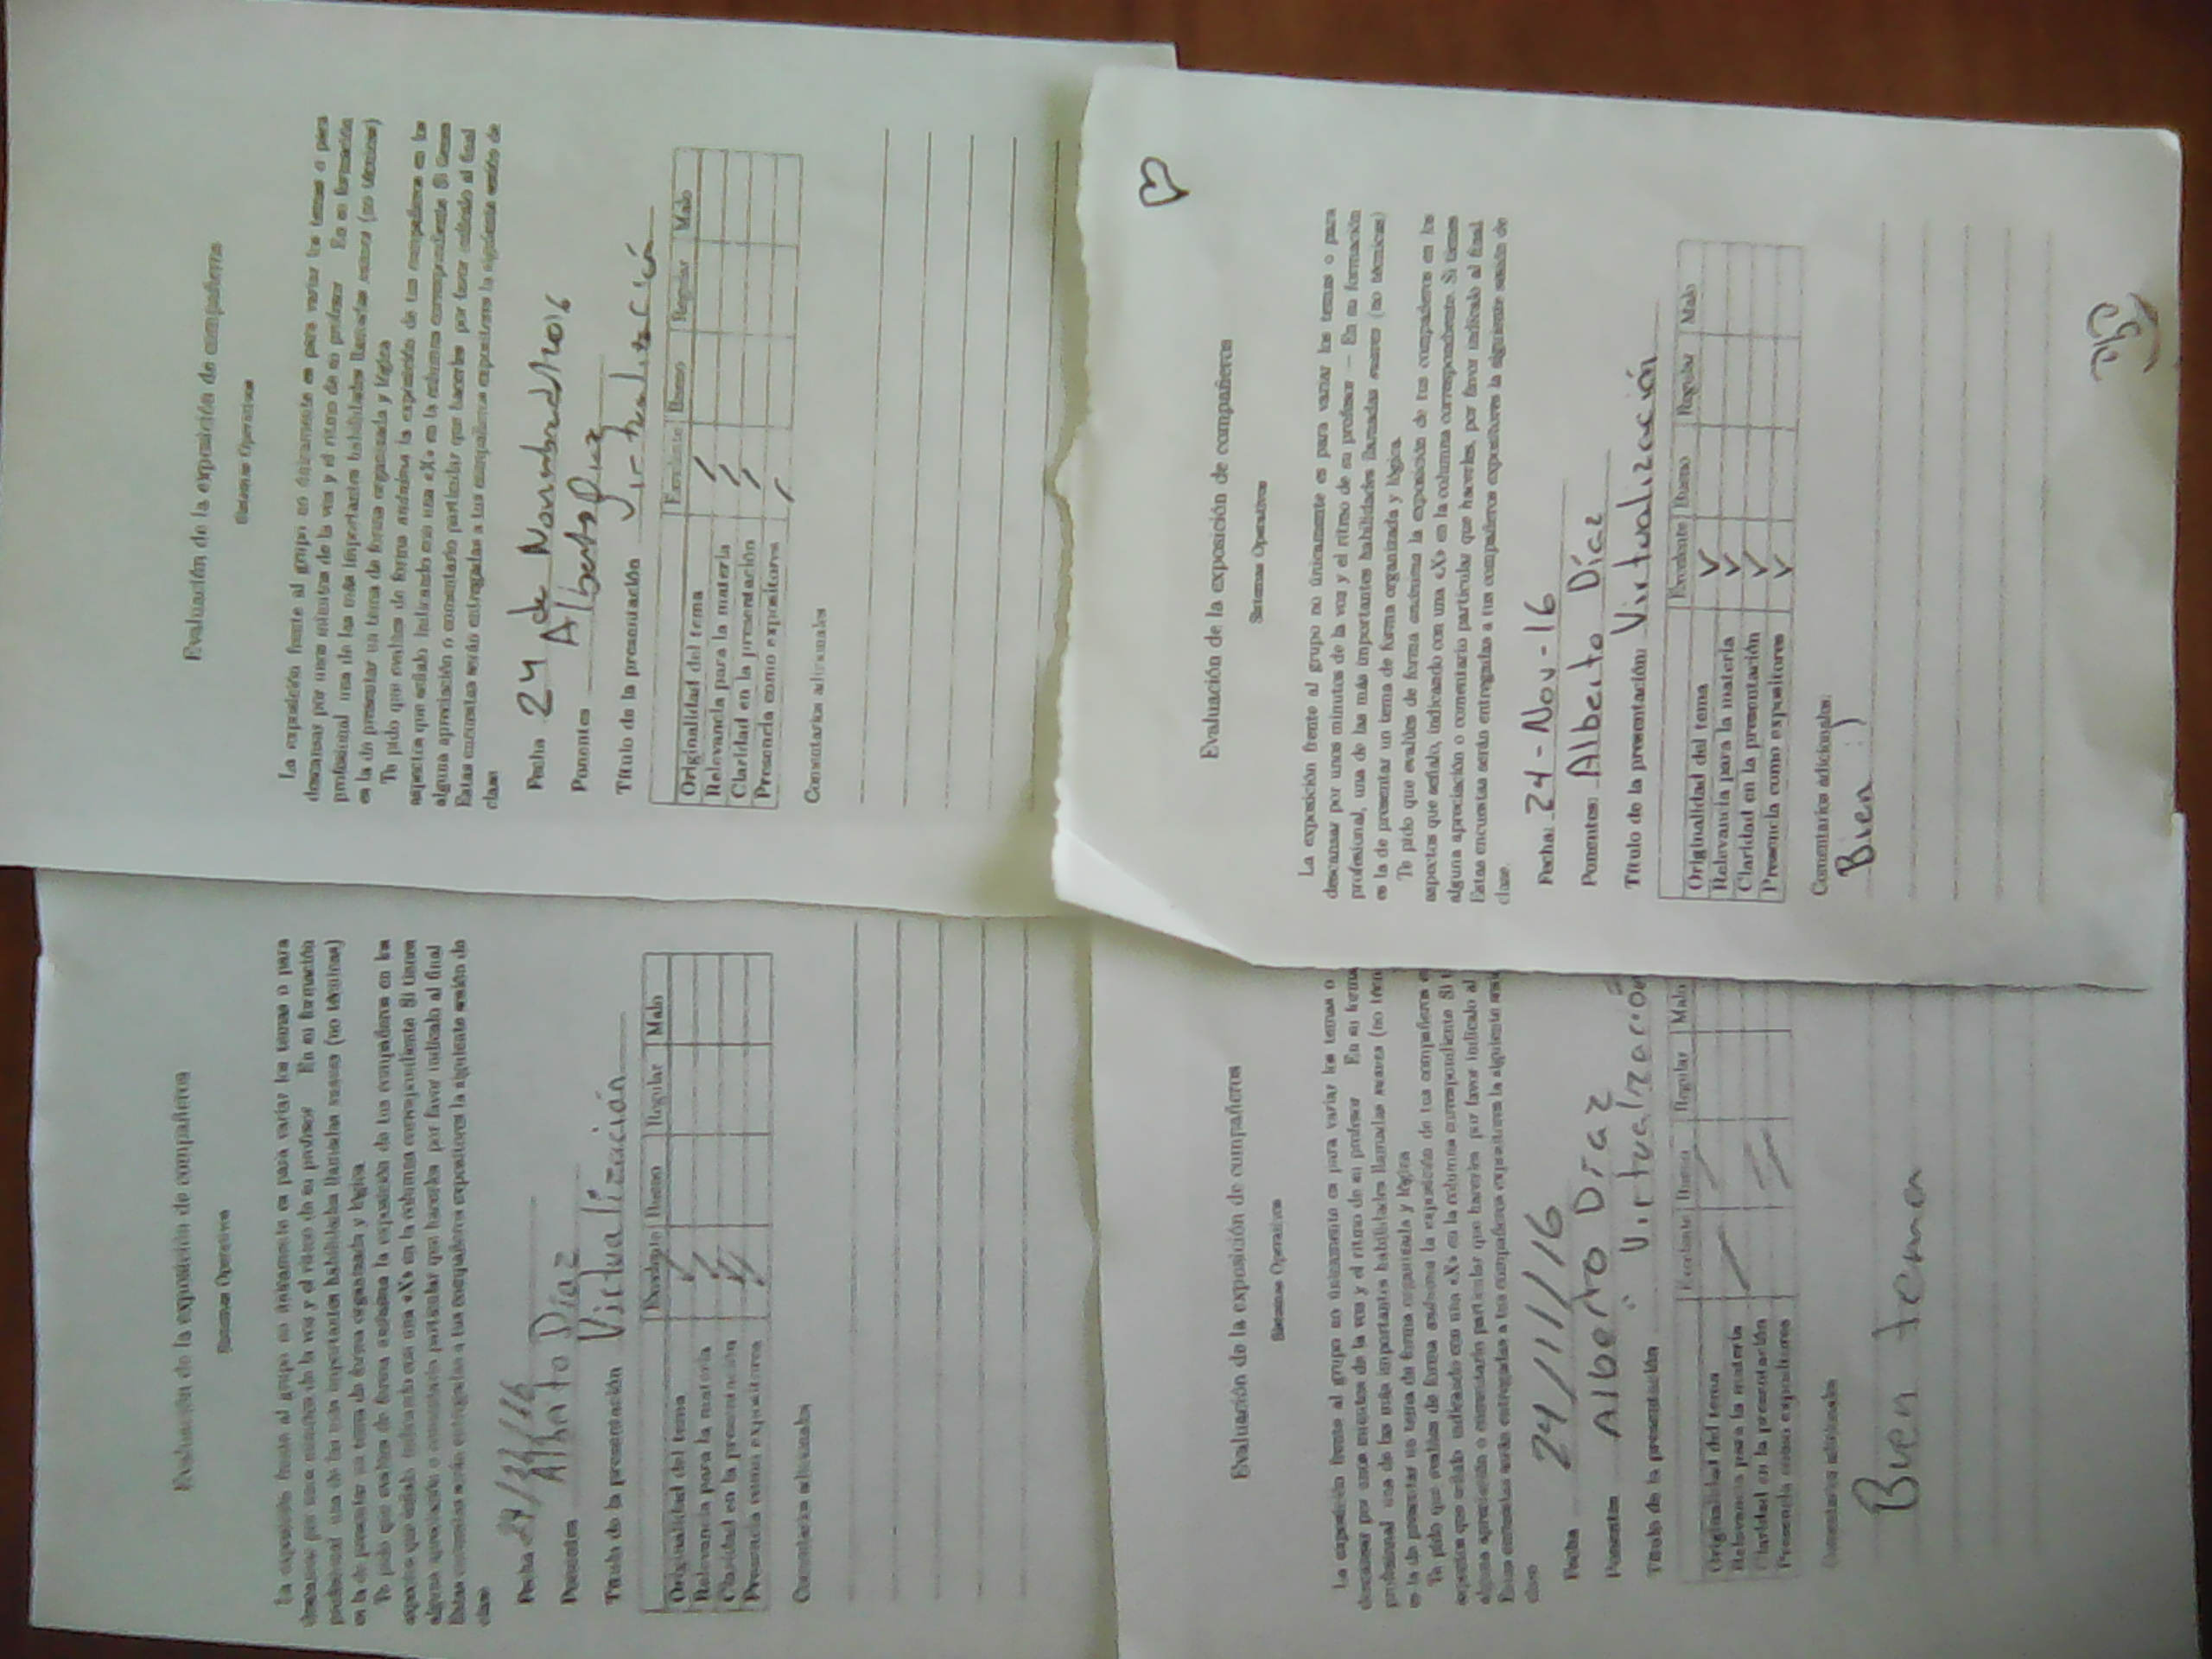 Evaluación de la exposición de compañeros
Sistemas Operativos
La exposición frente al grupo no únicamente es para variar los temas o para
descansar por unos minutos de la voz y el ritmo de su profesor En su formación
profesional una de las más importantes habilidades llamadas suaves (no técnicas)
es la de presentar un tema de forma organizada y lógica
Te pido que evalúes de forma anónima la exposición de tus compañeros en los
aspectos que señalo indicando con una «X» en la columna correspondiente Si tienes
alguna apreciación o comentario particular que hacerles por favor indícalo al final
Estas encuestas serán entregadas a tus compañeros expositores la siguiente sesión de
clase
Fecha
Ponentes Alberto Díaz
Título de la presentación Virtualización
Excelente Bueno Regular Malo
Originalidad del tema
Relevancia para la materia
Claridad en la presentación
Presencia como expositores
Comentarios adicionales
Evaluación de la exposición de compañeros
Sistemas Operativos
La exposición frente al grupo no únicamente es para variar los temas o para
descansar por unos minutos de la voz y el ritmo de su profesor En su formación
profesional una de las más importantes habilidades llamadas suaves (no técnicas)
es la de presentar un tema de forma organizada y lógica
Te pido que evalúes de forma anónima la exposición de tus compañeros en los
aspectos que señalo indicando con una «X» en la columna correspondiente Si tienes
alguna apreciación o comentario particular que hacerles por favor indícalo al final
Estas encuestas serán entregadas a tus compañeros expositores la siguiente sesión de
clase
Fecha 24 de
Ponentes Alberto Díaz
Título de la presentación
Excelente Bueno Regular Malo
Originalidad del tema
Relevancia para la materia
Claridad en la presentación
Presencia como expositores
Comentarios adicionales
Evaluación de la exposición de compañeros
Sistemas Operativos
La exposición frente al grupo no únicamente es para variar los temas o
descansar por unos minutos de la voz y el ritmo de su profesor En su
profesional una de las más importantes habilidades llamadas suaves (no
es la de presentar un tema de forma organizada y lógica
Te pido que evalúes de forma anónima la exposición de tus compañeros
aspectos que señalo indicando con una «X» en la columna correspondiente Si
alguna apreciación o comentario particular que hacerles por favor indícalo al
Estas encuestas serán entregadas a tus compañeros expositores la siguiente
clase
Fecha 24/11/16
Ponentes Alberto Díaz
Título de la presentación "Virtualización
Excelente Bueno Regular Malo
Originalidad del tema
Relevancia para la materia
Claridad en la presentación
Presencia como expositores
Comentarios adicionales
Buen tema
Evaluación de la exposición de compañeros
Sistemas Operativos
La exposición frente al grupo no únicamente es para variar los temas o para
descansar por unos minutos de la voz y el ritmo de su profesor — En su formación
profesional, una de las más importantes habilidades llamadas suaves (no técnicas)
es la de presentar un tema de forma organizada y lógica.
Te pido que evalúes de forma anónima la exposición de tus compañeros en los
aspectos que señalo, indicando con una «X» en la columna correspondiente. Si tienes
alguna apreciación o comentario particular que hacerles, por favor indícalo al final.
Estas encuestas serán entregadas a tus compañeros expositores la siguiente sesión de
clase.
Fecha: 24-Nov-16
Ponentes: Alberto Díaz
Título de la presentación: Virtualización
Excelente Bueno Regular Malo
Originalidad del tema
Relevancia para la materia
Claridad en la presentación
Presencia como expositores
Comentarios adicionales:
Bien :)